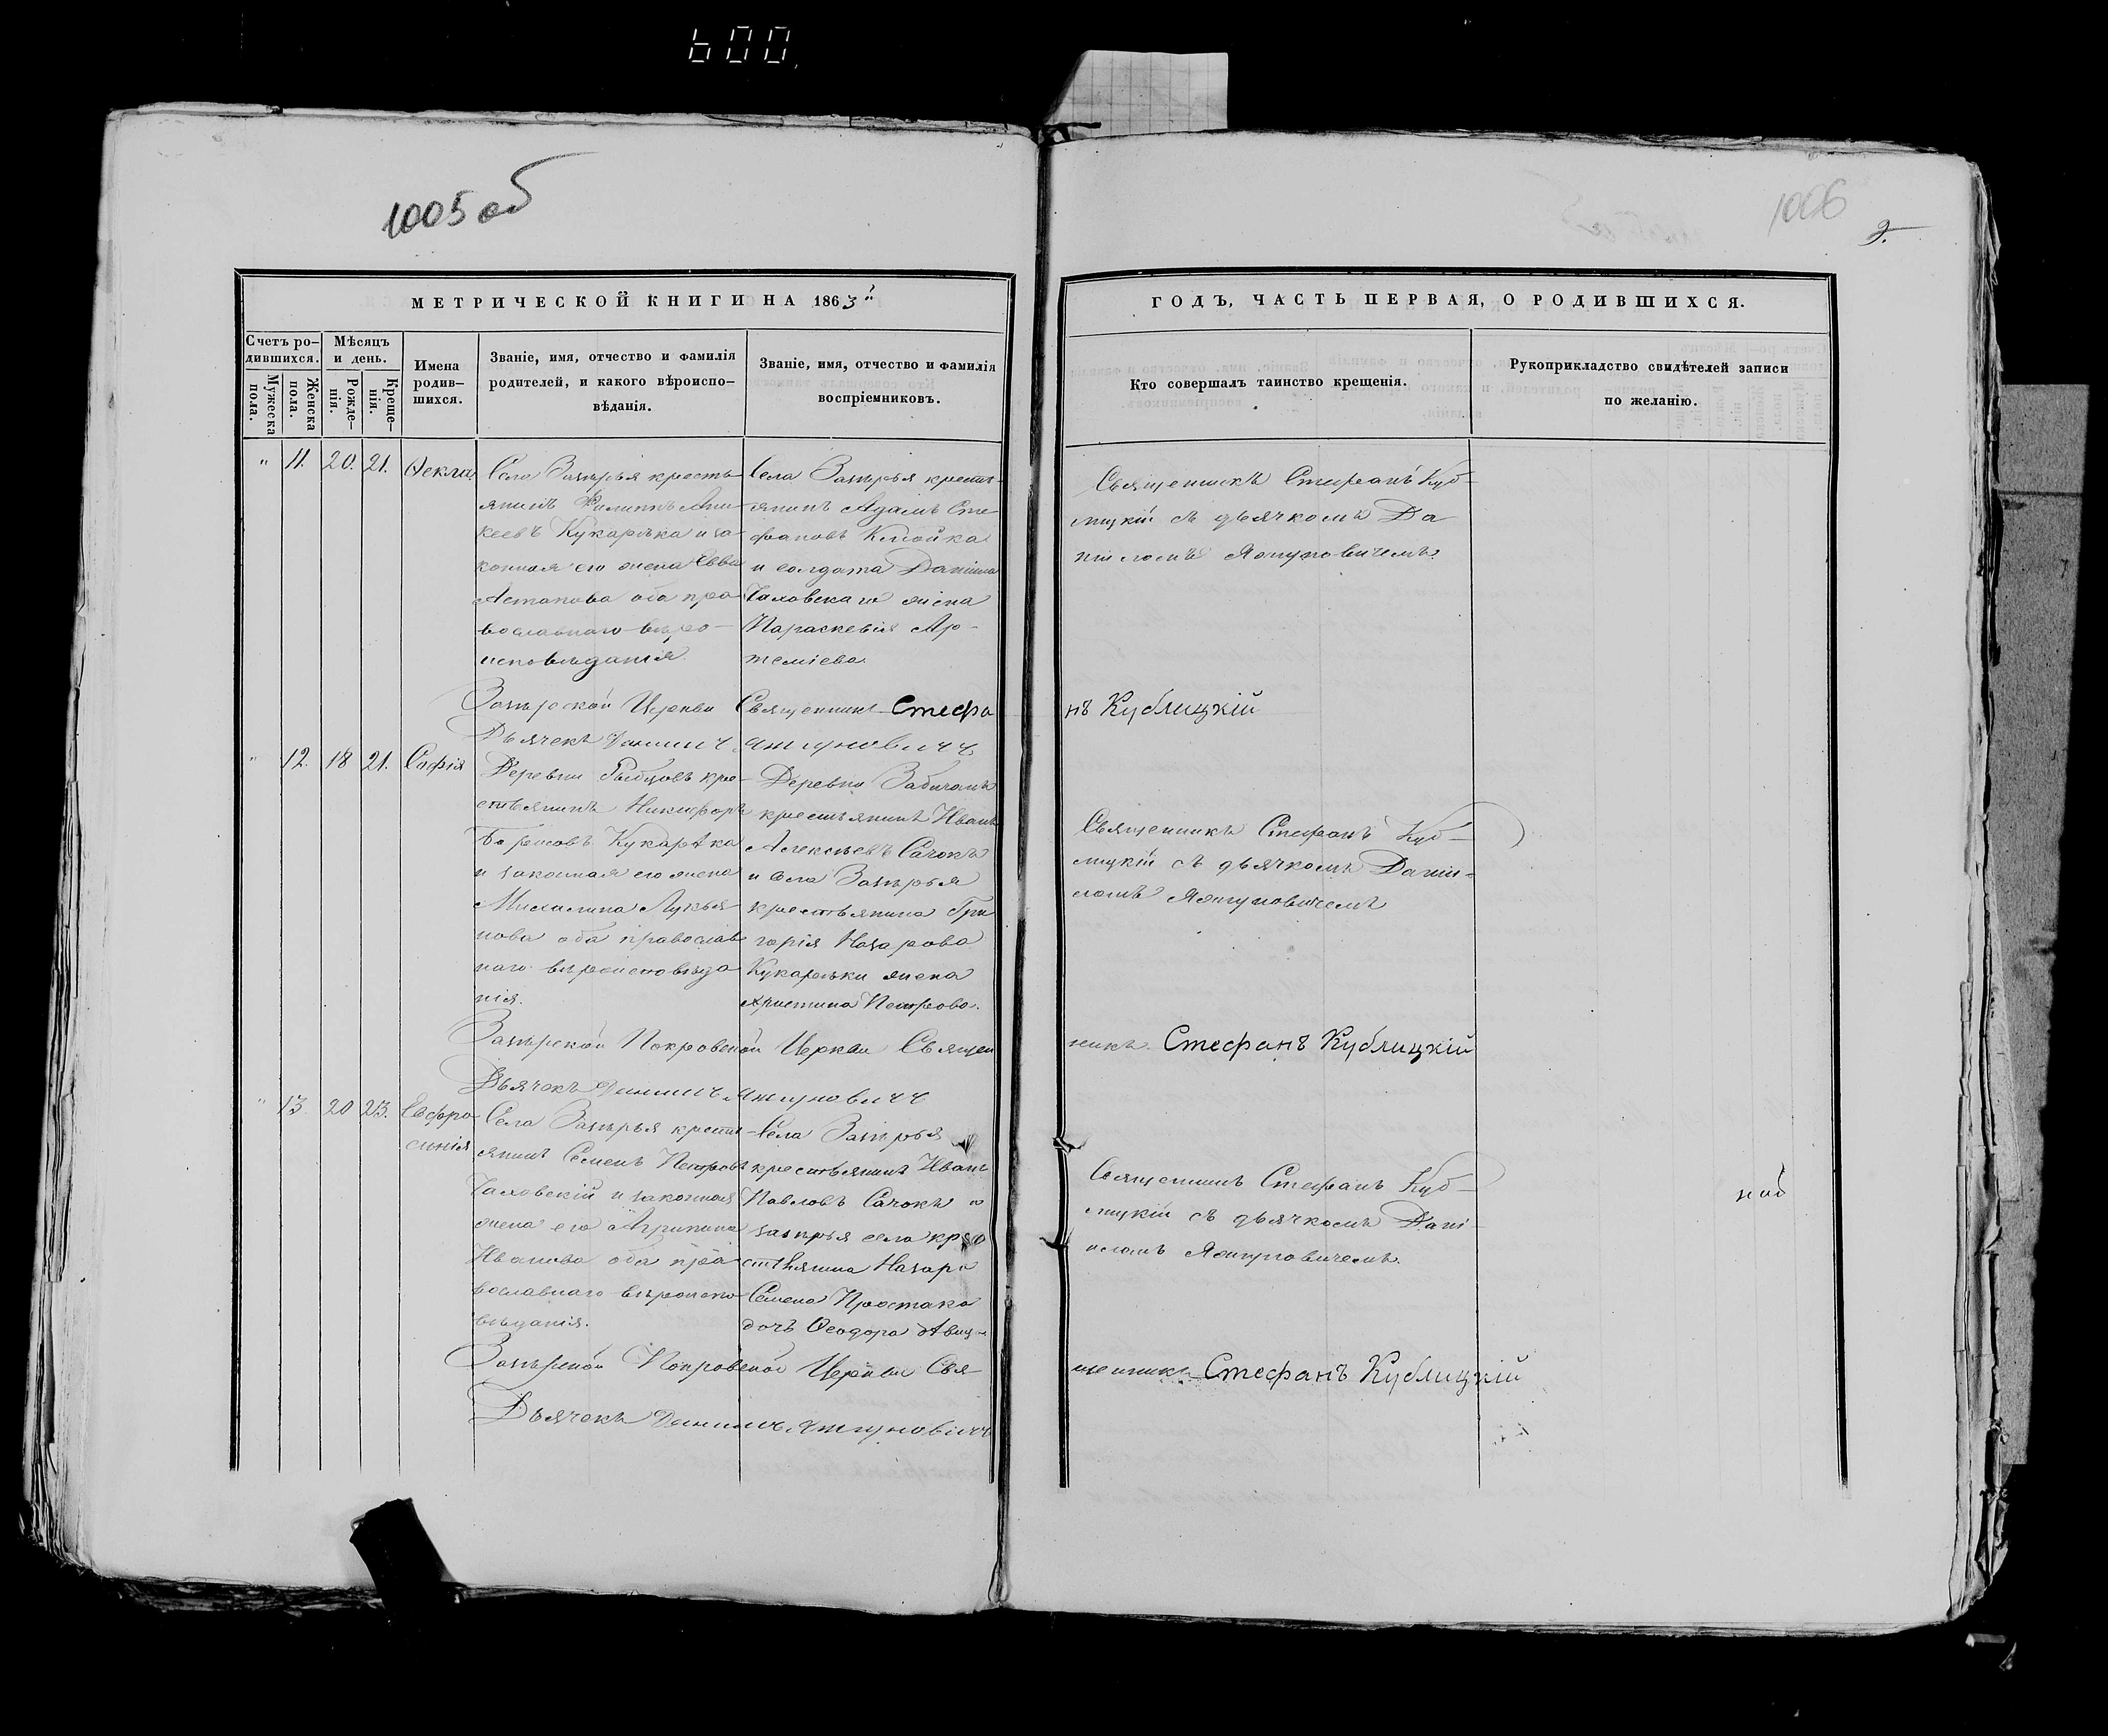 600
1005 об
1006
2.
МЕТРИЧЕСКОЙ КНИГИ НА 1863й
ГОДЪ, ЧАСТЬ ПЕРВАЯ, О РОДИВШИХСЯ.
Счетъ ро-
дившихся.
Мужеска
пола.
Женска
пола.
Мѣсяцъ
и день.
Рожде-
нія.
Креще-
нія.
Имена
родив-
шихся.
Званіе, имя, отчество и фамилія
родителей, и какого вѣроиспо-
вѣданія.
Званіе, имя, отчество и фамилія
воспріемниковъ.
Кто совершалъ таинство крещенія.
Рукоприкладство свидѣтелей записи
по желанію.
" 11. 20. 21. Ѳекла
Села Замрѣя кресть-
янинъ Филиппъ
Кукарѣка и за
конная его жена Евва
оба пра
вославнаго вѣро-
исповѣданія.
Села Замрѣя кресть-
янинъ Адамъ Сте
фановъ
и солдата Даніила
Чаховскаго жена
Параскевія Ар-
теміева.
Священникъ Стефанъ Куб-
лицкій съ дьячкомъ Да
ніиломъ
Церкви Священникъ Стефа
нъ Кублицкій
Дьячекъ Даніилъ
" 12. 18 21. Софія
Деревни кре-
стьянинъ Никифоръ
Борисовъ Кукарѣка
и законная его жена
Михалина Лукья
нова оба православ
наго вѣроисповѣда
нія.
Деревни
крестьянинъ Иванъ
Алексѣевъ Сачокъ
и села Замрѣя
крестьянина Гри
горія Назарова
Кукарѣки жена
Христина Петрова.
Священникъ Стефанъ Куб-
лицкій съ дьячкомъ Даніи-
ломъ
Покровской Церкви Священ
никъ Стефанъ Кублицкій
Дьячекъ Даніилъ
" 13 20 23. Евфро
синія
Села Замрѣя кресть
янинъ Семенъ Петровъ
Чаховскій и законная
жена его Агрипина
Иванова оба пра
вославнаго вѣроиспо
вѣданія.
Села Замрѣя
крестьянинъ Иванъ
Павловъ Сачокъ и
села кре
стьянина Назара
Семена Простака
дочь Ѳеодора
Священникъ Стефанъ Куб-
лицкій съ дьячкомъ Дані-
иломъ
Покровской Церкви Свя
щенникъ Стефанъ Кублицкій
Дьячекъ Даніилъ